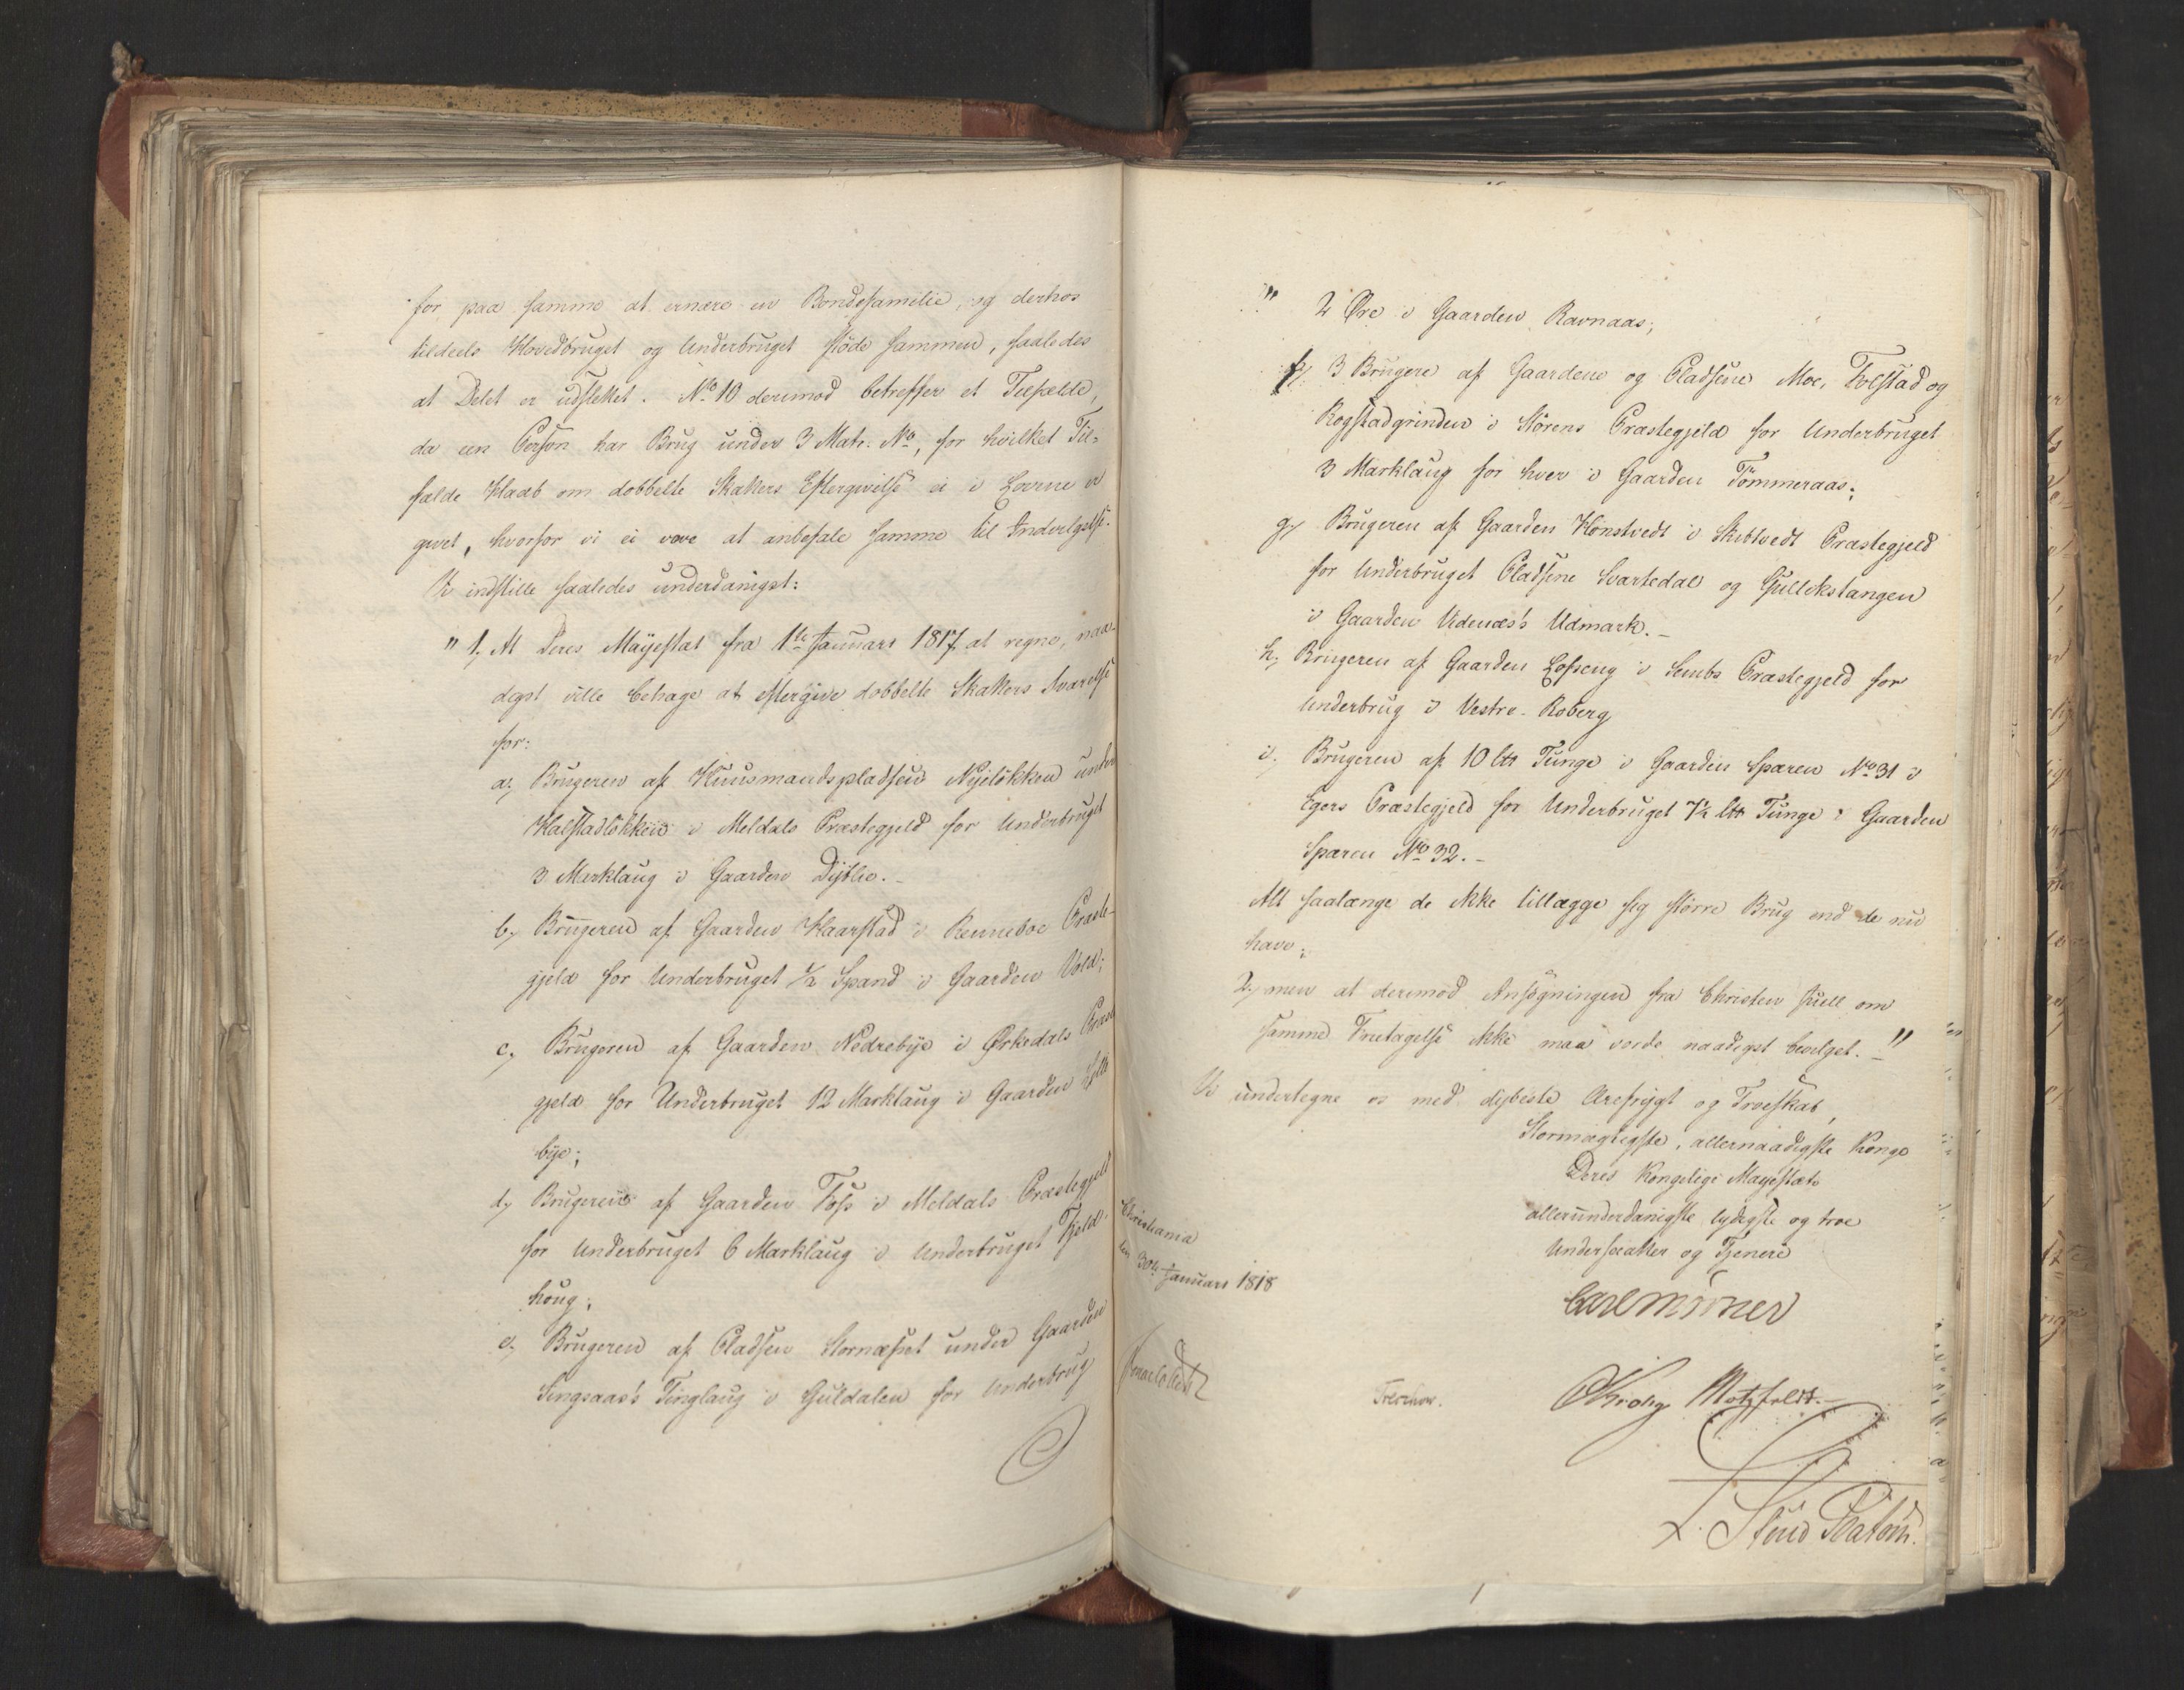 for paa samme at ernære en Bondefamilie, og derhos
tildeels Hovedbruget og Underbruget støde sammen, saaledes
at Delet er udslettet. No 10 derimod betreffer et Tilfælde,
da een Person har Brug under 3 Matr: No, for hvilket Til-
fælde Haab om dobbelte Skatters Eftergivelse ei i Lovene er
givet, hvorfor vi ei vove at anbefale samme til Indvilgelse.
Vi indstille saaledes underdanigst:
" 1, At Deres Mayestæt fra 1te Januari 1817 at regne, naa-
digst ville behage at eftergive dobbelte Skatters Svarelse
for:
a, Brugeren af Huusmandspladsen Nyeløkken under
Halstadløkken i Meldals Præstegjeld for Underbruget
3 Marklaug i Gaarden Dyblie. –
b, Brugeren af Gaarden Haarstad i Renneboe Præste-
gjeld for Underbruget 1/2 Spand i Gaarden Vold;
c, Brugeren af Gaarden Nedrebye i Ørkedals Præste
gjeld for Underbruget 12 Marklaug i Gaarden
bye;
d, Brugeren af Gaarden Foss i Meldals Præstegjeld
for Underbruget 6 Marklaug i Underbruget Fjeld-
houg;
e, Brugeren af Pladsen Stornæsset under Gaarden
Singsaas's Tinglaug i Guldalen for Underbrug
" 2 Øre i Gaarden Ravnaas;
f, 3 Brugere af Gaardene og Pladsene Moe, Folstad og
Rogstadgrinden i Störens Præstegjeld for Underbruget
3 Marklaug for hver i Gaarden Tömmeraas;
g, Brugeren af Gaarden Hönstvedt i Skibtvedt Præstegjeld
for Underbruget Pladsene Svartedal og Gulliksstangen
i Gaarden Videnæs's Udmark. –
h, Brugeren af Gaarden Lofseng i Sembs Præstegjeld for
Underbrug i Vestre Roberg
i, Brugeren af 10 Ltt Tunge i Gaarden Sparen No 31 i
Egers Præstegjeld for Underbruget 7 1/2 Ltt Tunge i Gaarden
Sparen No 32. –
Alt saalænge de ikke tillægge sig större Brug end de nu
have;
2, men at derimod Ansögningen fra Christen om
samme Fritagelse ikke maa vorde naadigst bevilget. – "
Vi undertegne os med dybeste Ærefrygt og Troeskab,
Stormægtigste, allernaadigste Konge
Deres Kongelige Mayestæts
allerunderdanigste lydigste og troe
Undersaatter og Tjenere
Christiania
den 30te Januari 1818
Carl Mörner
Treschow.
CKrohg Motzfeldt. –